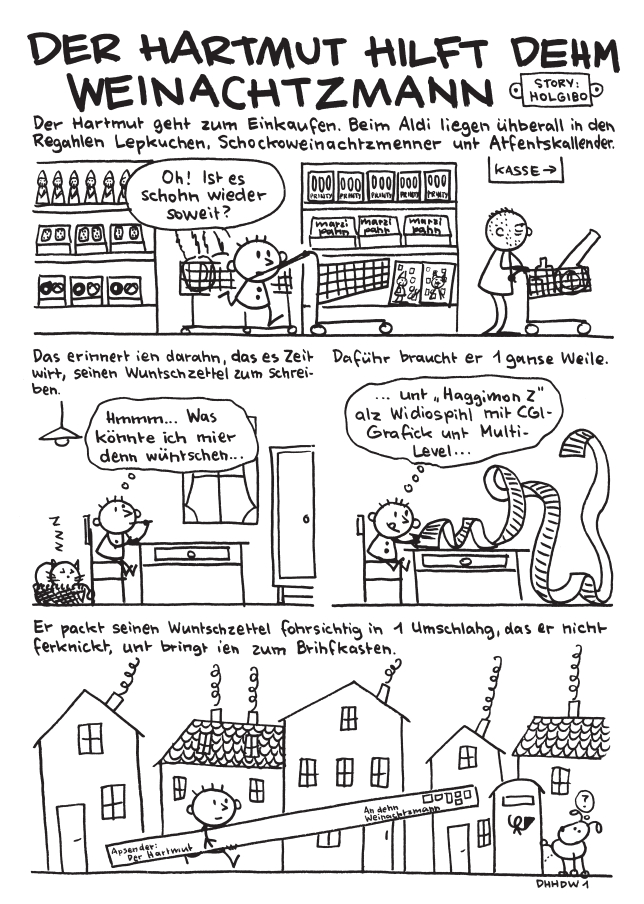 DER HARTMUT HILFT DEHM
WEINACHTZMANN
STORY:
HOLGIBO
Der Hartmut geht zum Einkaufen. Beim Aldi liegen ühberall in den
Regahlen Lepkuchen, Schockoweinachtzmenner unt Atfentskallender.
KASSE →
Oh! Ist es
schohn wieder
soweit?
PRINTY PRINTY PRINTY PRINTY PRINTY
marzi marzi marzi
pahn pahn pahn
Das erinnert ien darahn, das es Zeit
wirt, seinen Wuntschzettel zum Schrei-
ben.
Hmmm... Was
könnte ich mier
denn wüntschen...
Z
Z
Z
Z
Daführ braucht er 1 ganse Weile.
... unt „Haggimon 2"
alz Widiospihl mit CGI-
Grafick unt Multi-
Level...
Er packt seinen Wuntschzettel fohrsichtig in 1 Umschlahg, das er nicht
ferknickt, unt bringt ien zum Brihfkasten.
An dehn
Weinachtzmann
Apsender:
Der Hartmut
?
DHHDW 1